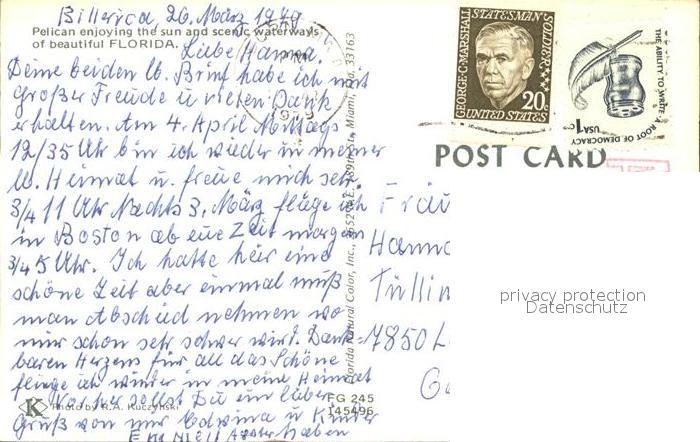 Billerica, 26. März 1979
Pelican enjoying the sun and scenic waterways
of beautiful FLORIDA.
Liebe Hanna.
Deine beiden lb. Brief habe ich mit
großer Freude u vielen Dank
erhalten. Am 4. April Mittags
12/35 Uhr bin ich wieder in meiner
lb. Heimat u. freue mich sehr
3/4 11 Uhr Nachts 3. März fliege ich
in Boston ab eue Zeit morgen
3/4 5 Uhr. Ich hatte hier eine
schöne Zeit aber einmal muß
man Abschied nehmen wo
mir schon sehr schwer wird. Dank=
baren Herzens für all das Schöne
fliege ich wieder in meine Heimat
Vorher selbst Du ein lieber
Gruß von mir Edwina u Kinder
haben
K Photo by R.A. Kuczynski
FG 245
145496
Florida Natural Color, Inc., Miami, Fla. 33163
GEORGE·C·MARSHALL
STATESMAN SOLDIER
20c
UNITED STATES
THE ABILITY TO WRITE
A ROOT OF DEMOCRACY
USA 1c
POST CARD
Frau
Hanna
Tüllin
7850 L
privacy protection
Datenschutz